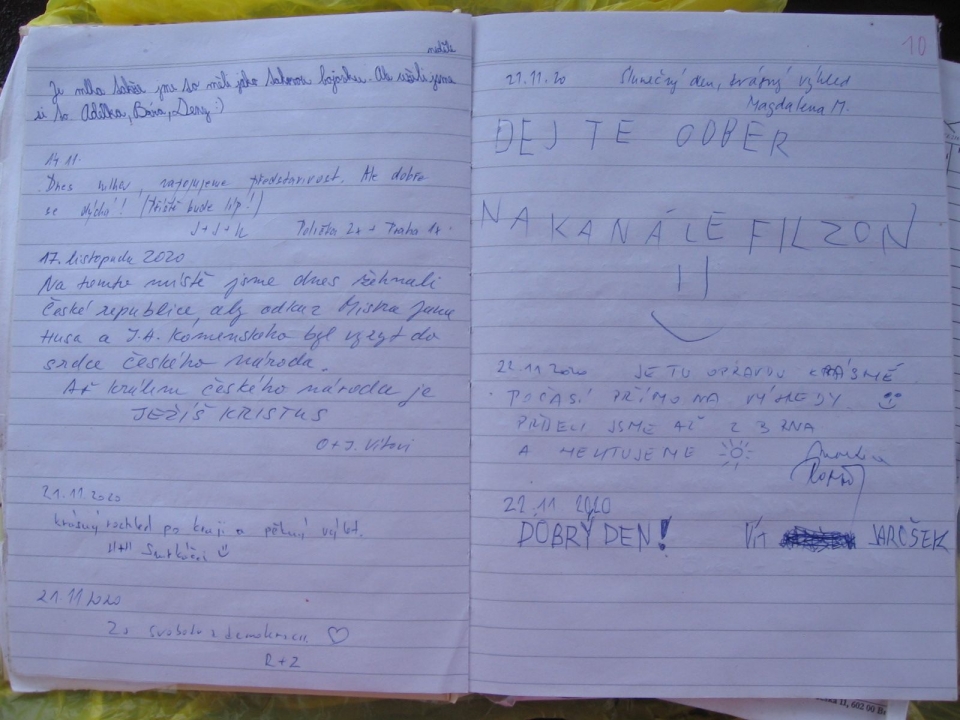 neděle
Je mlha takže jsme se měli jako bojovku. Ale užili jsme
si to Adélka, Bára, Deny :)
14.11.
Dnes mlha, zapojujeme představivost. Ale dobře
se dýchá! (Příště bude líp!)
J+J+K Polička 2x + Praha 1x.
17. listopadu 2020
Na tomto místě jsme dnes žehnali
České republice, aby odkaz Mistra Jana
Husa a J.A. Komenského byl vyryt do
srdce českého národa.
Ať králem českého národa je
JEŽÍŠ KRISTUS
O+J. Vítovi
21.11.2020
krásný rozhled po kraji a pěkný výlet.
21.11.2020
Za svobodu a demokracii ♡
R+Z
10
21.11.20 Slunečný den, krásný výhled
Magdalena M.
DEJTE ODBĚR
NA KANÁLE FILZON
22.11.2020 JE TU OPRAVDU KRÁSNĚ
POČASÍ PŘÍMO NA VÝHLEDY
PŘIJELI JSME AŽ Z BRNA
A NELITUJEME
22.11 2020
DOBRÝ DEN! VÍT JARČŠEK
II, 602 00